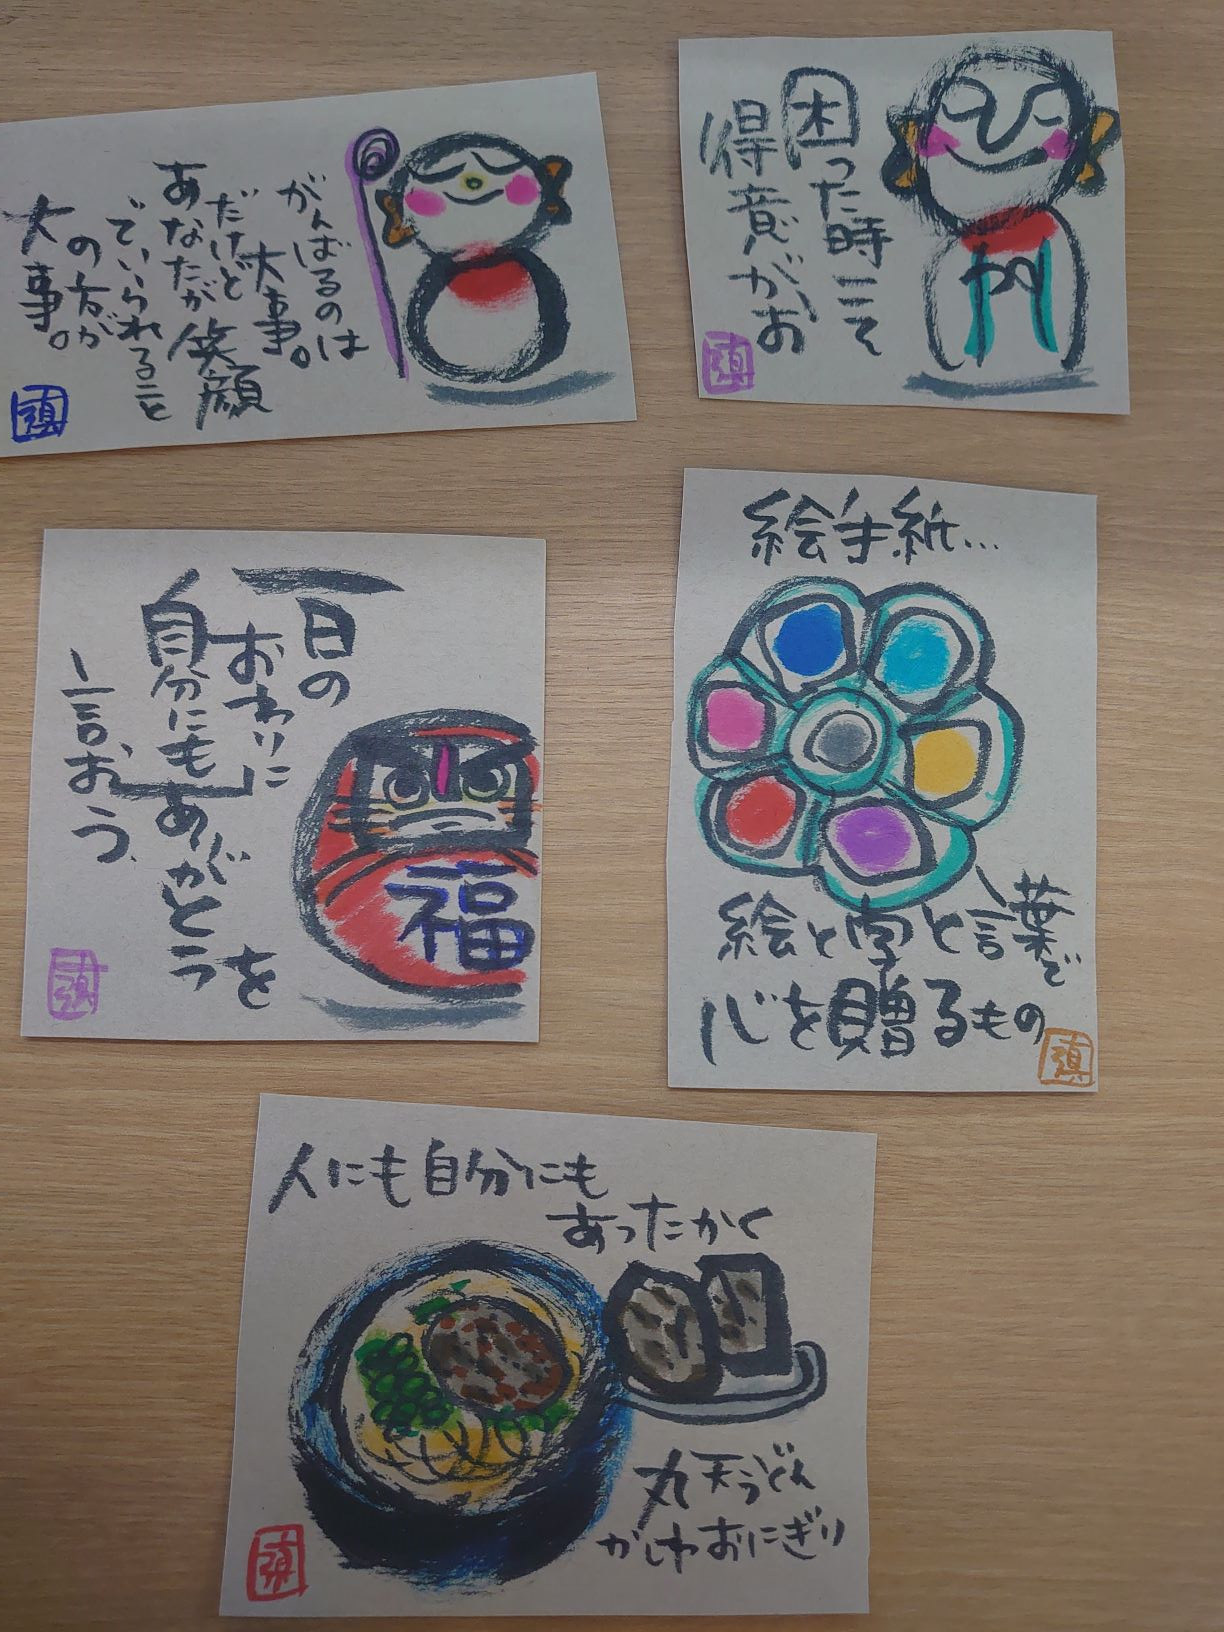 がんばるのは
大事。
だけど
あなたが笑顔
でいられること
の方が
大事。
困った時こそ
得意がお
一日の
おわりに
自分にも
ありがとう
を
言おう
福
絵手紙…
絵と字と言葉で
心を贈るもの
人にも自分にも
あったかく
丸天うどん
かしわおにぎり